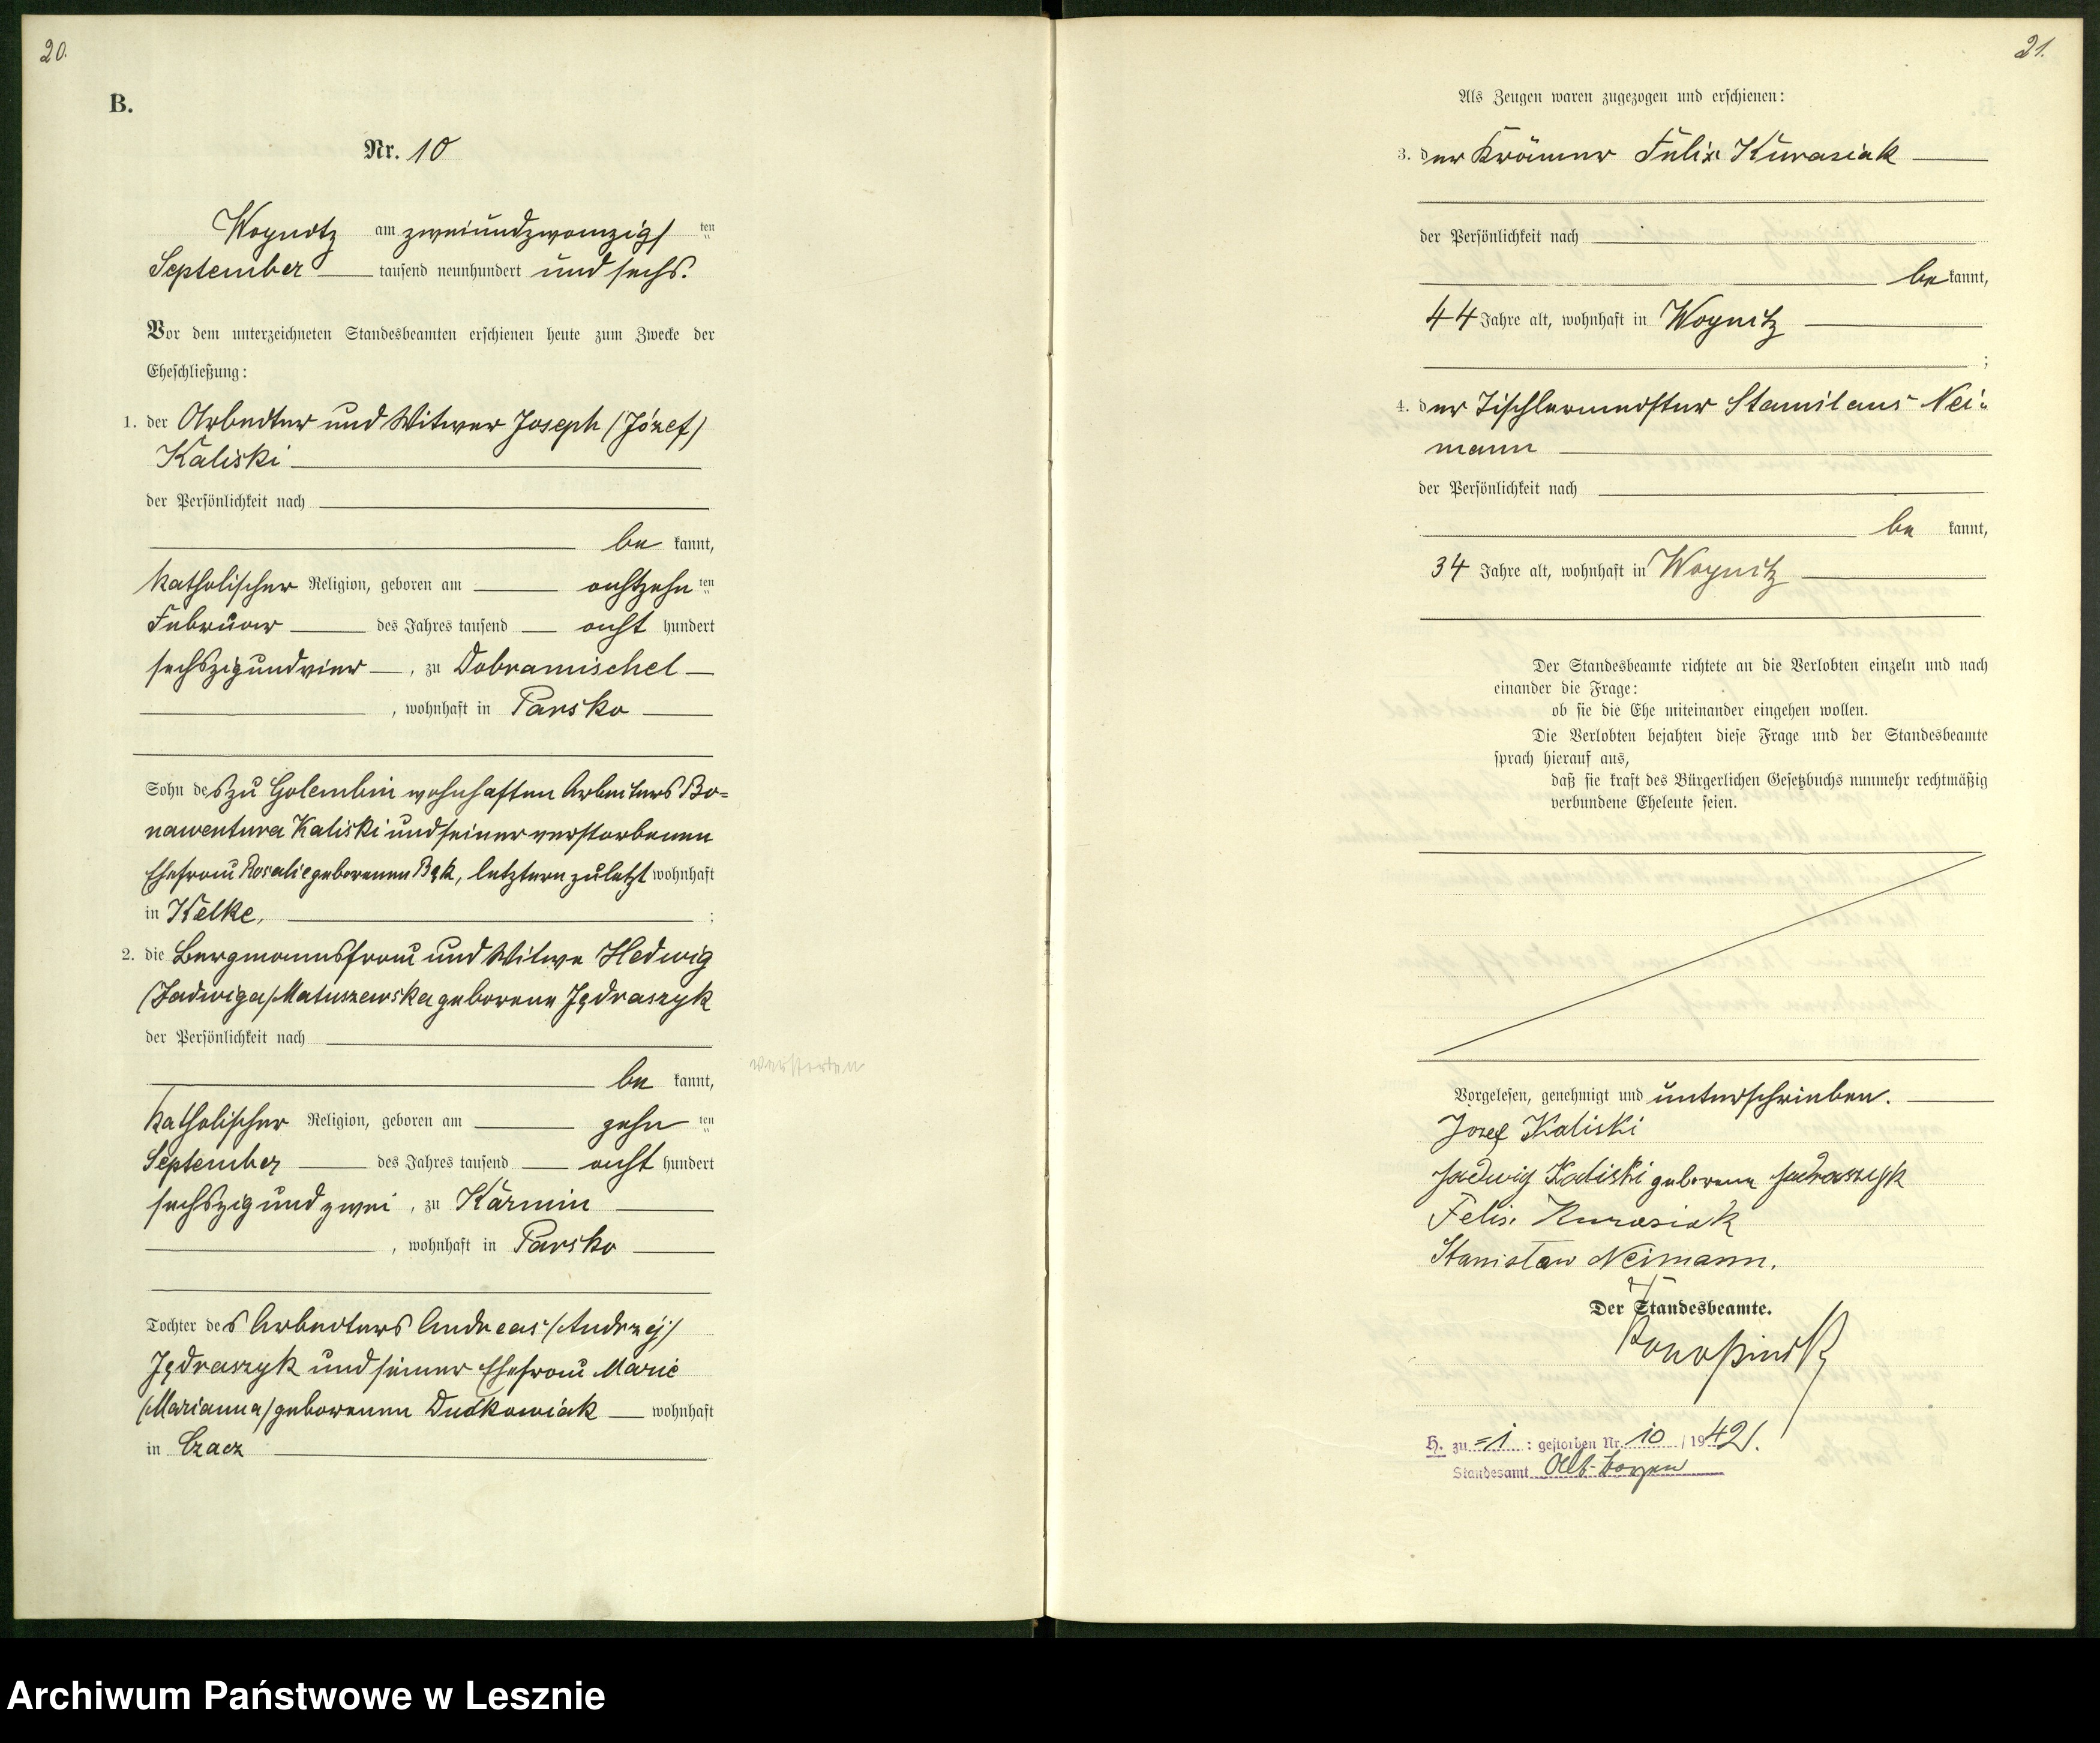 20.
B.
Nr. 10
Woynitz am zweiundzwanzigsten
September tausend neunhundert und sechs.
Vor dem unterzeichneten Standesbeamten erschienen heute zum Zwecke der
Eheschließung:
1. der Arbeiter und Witwer Joseph /Józef/
Kaliski
der Persönlichkeit nach
be kannt,
katholischer Religion, geboren am achtzehn ten
Februar des Jahres tausend acht hundert
sechszigundvier, zu Dobramischel
, wohnhaft in Parsko
Sohn des zu Golembin wohnhaften Arbeiters Bo-
nawentura Kaliski und seiner verstorbenen
Ehefrau Rosalie geborenen Bąk, letztere zuletzt wohnhaft
in Kelke, ;
2. die Bergmannsfrau und Witwe Hedwig
/Jadwiga/ Matuszewska geborene Jędraszyk
der Persönlichkeit nach
be kannt,
verstorben
katholischer Religion, geboren am zehn ten
September des Jahres tausend acht hundert
sechszig und zwei, zu Karmin
, wohnhaft in Parsko
Tochter des Arbeiters Andreas /Andrzej/
Jędraszyk und seiner Ehefrau Marie
/Marianna/ geborenen Dudkowiak wohnhaft
in Czacz
21.
Als Zeugen waren zugezogen und erschienen:
3. der Krämer Felix Kurasiak
der Persönlichkeit nach
be kannt,
44 Jahre alt, wohnhaft in Woynitz
;
4. der Tischlermeister Stanislaus Nei-
mann
der Persönlichkeit nach
be kannt,
34 Jahre alt, wohnhaft in Woynitz
Der Standesbeamte richtete an die Verlobten einzeln und nach
einander die Frage:
ob sie die Ehe miteinander eingehen wollen.
Die Verlobten bejahten diese Frage und der Standesbeamte
sprach hierauf aus,
daß sie kraft des Bürgerlichen Gesetzbuchs nunmehr rechtmäßig
verbundene Eheleute seien.
Vorgelesen, genehmigt und unterschrieben.
Józef Kaliski
Hedwig Kaliski geborene Jadraszyk
Felix Kurasiak
Stanisław Neimann.
Der Standesbeamte.
H. zu =1 : gestorben Nr. 10 / 1942
Standesamt Alt-Boyen
Archiwum Państwowe w Lesznie